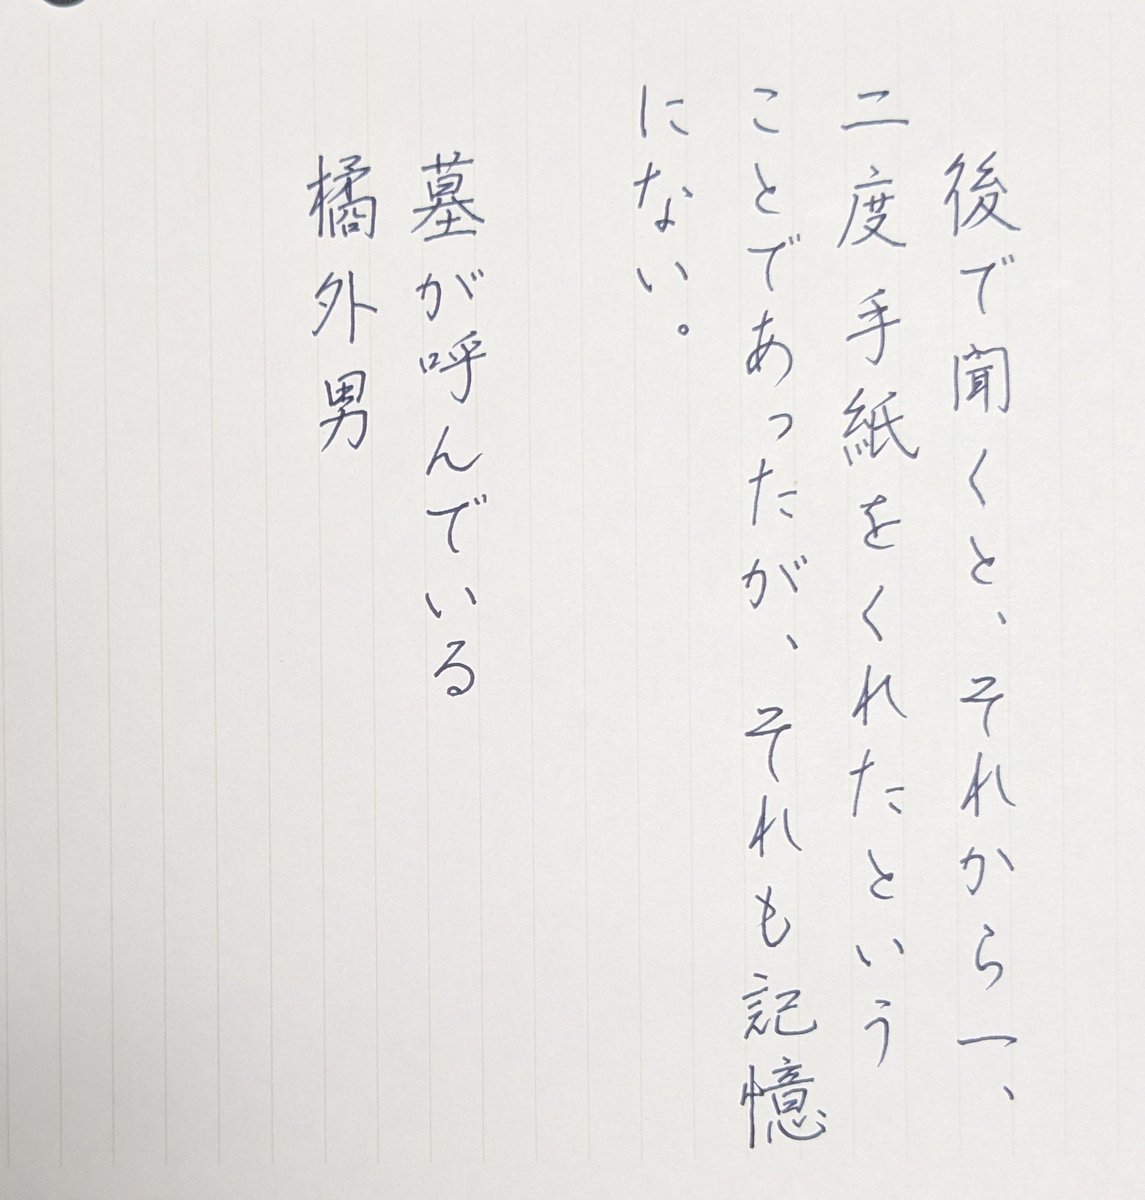 後で聞くと、それから一、
二度手紙をくれたという
ことであったが、それも記憶
にない。
墓が呼んでいる
橘外男